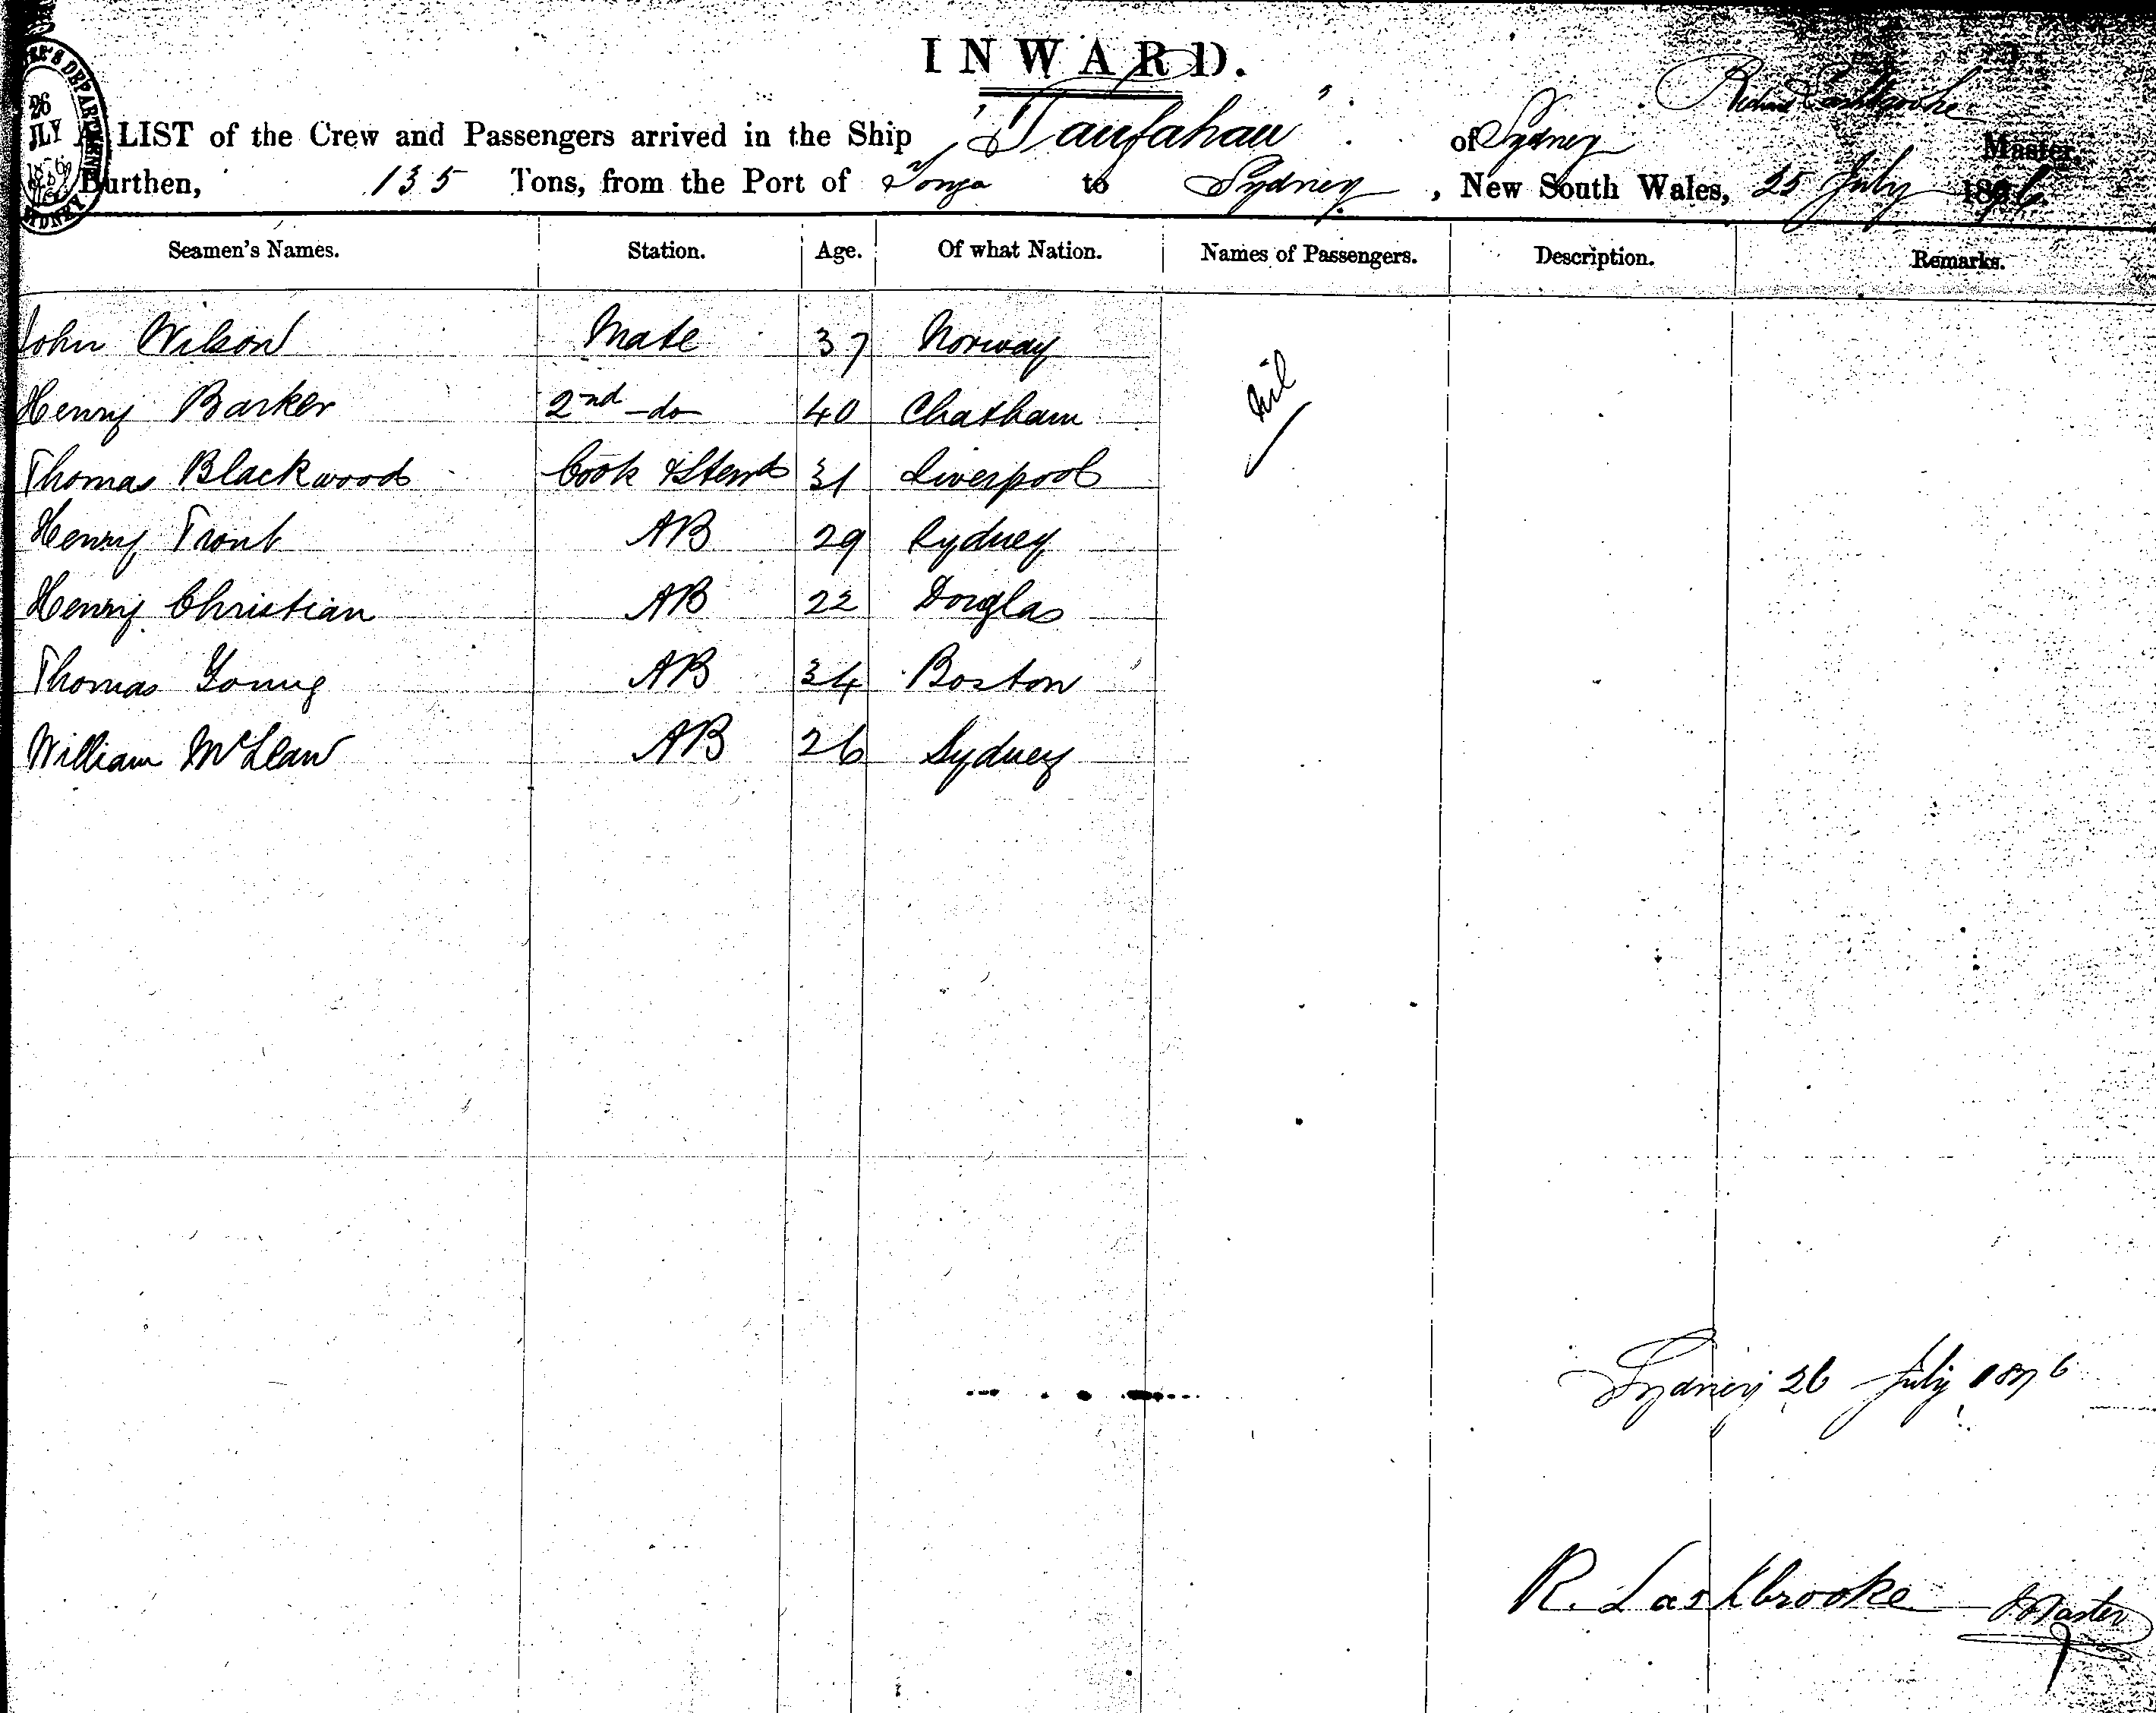 INWARD.
26
JLY
1876
SYDNEY
A LIST of the Crew and Passengers arrived in the Ship "Taufahau" of Sydney Richard Lashbrooke Master,
Burthen, 135 Tons, from the Port of Tonga to Sydney, New South Wales, 25 July 1876.
Seamen's Names. Station. Age. Of what Nation. Names of Passengers. Description. Remarks.
John Wilson Mate 37 Norway
Henry Barker 2nd -do- 40 Chatham nil
Thomas Blackwood Cook & Stewd 31 Liverpool
Henry Front AB 29 Sydney
Henry Christian AB 22 Douglas
Thomas Young AB 34 Boston
William McLean AB 26 Sydney
Sydney 26 July 1876
R. Lashbrooke Master